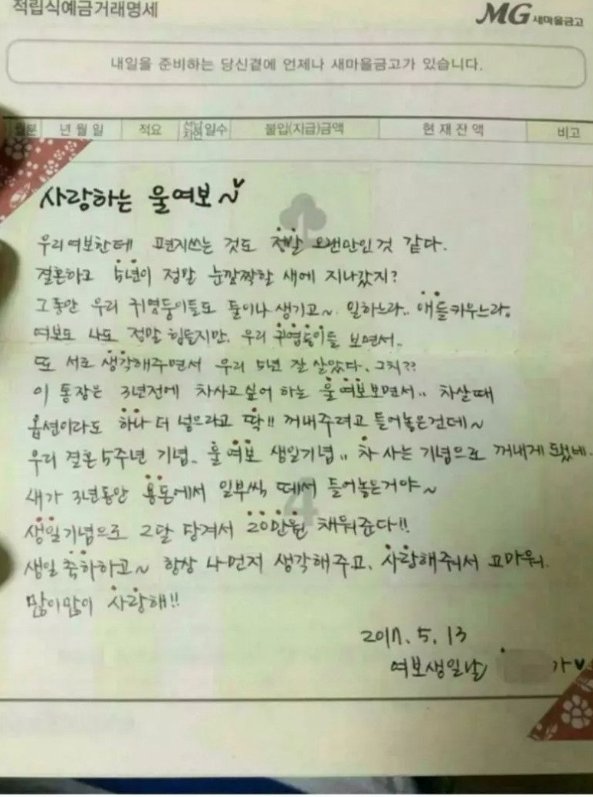 적립식예금거래명세
MG 새마을금고
내일을 준비하는 당신곁에 언제나 새마을금고가 있습니다.
년 월 일 적요 선납 지연 일수 불입(지급)금액 현 재 잔 액 비고
사랑하는 울여보~♥
우리여보한테 편지쓰는 것도 정말 오랜만인것 같다.
결혼하고 5년이 정말 눈깜짝할 새에 지나갔지?
그동안 우리 귀염둥이들도 둘이나 생기고~ 일하느라.. 애들키우느라,
여보도 나도 정말 힘들지만, 우리 귀염둥이들 보면서..
또 서로 생각해주면서 우리 5년 잘 살았다. 그치??
이 통장은 3년전에 차사고싶어 하는 울 여보보면서.. 차살때
옵션이라도 하나 더 넣으라고 딱!! 꺼내주려고 들어놓은건데~
우리 결혼5주년 기념.. 울 여보 생일기념.. 차 사는 기념으로 꺼내게 됐네.
내가 3년동안 용돈에서 일부씩 떼서 들어놓은거야~
생일기념으로 2달 당겨서 20만원 채워준다!!
생일 축하하고~ 항상 나먼저 생각해주고, 사랑해줘서 고마워.
많이많이 사랑해!!
2017. 5. 13
여보생일날 가♥